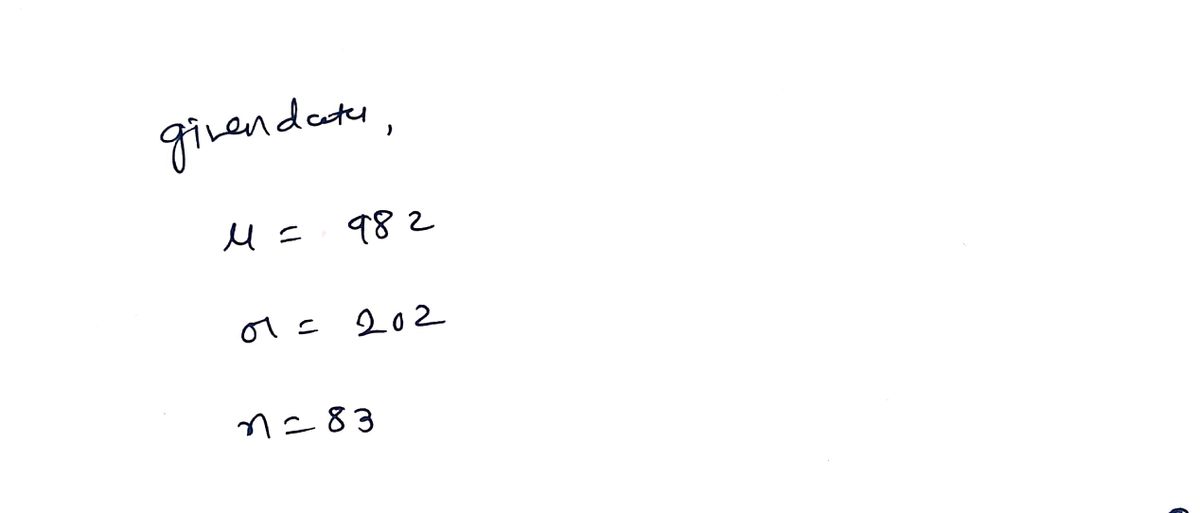 given data,
μ = 982
σ = 202
n = 83